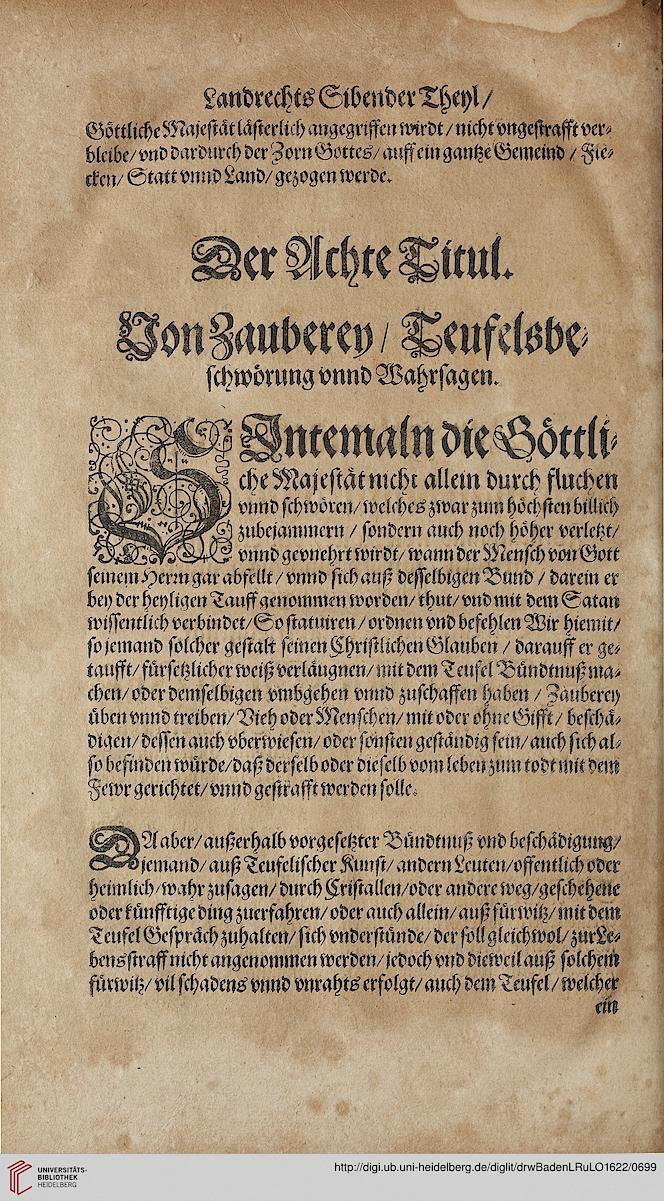 Landrechts Sibender Theyl /
Göttliche Majestät lästerlich angegriffen wirdt / nicht vngestrafft ver-
bleibe / vnd dardurch der Zorn Gottes / auff ein gantze Gemeind / Fle-
cken / Statt vnnd Land / gezogen werde.
Der Achte Titul.
Von Zauberey / Teufelsbe-
schwörung vnnd Wahrsagen.
SIntemaln die Göttli-
che Majestät nicht allein durch fluchen
vnnd schwören / welches zwar zum höchsten billich
zubejammern / sondern auch noch höher verletzt /
vnnd gevnehrt wirdt / wann der Mensch von Gott
seinem Herrn gar abfellt / vnnd sich auß desselbigen Bund / darein er
bey der heyligen Tauff genommen worden / thut / vnd mit dem Satan
wissentlich verbindet / So statuiren / ordnen vnd befehlen Wir hiemit /
so jemand solcher gestalt seinen Christlichen Glauben / darauff er ge-
taufft / fürsetzlicher weiß verläugnen / mit dem Teufel Bündtnuß ma-
chen / oder demselbigen vmbgehen vnnd zuschaffen haben / Zauberey
üben vnnd treiben / Vieh oder Menschen / mit oder ohne Gifft / beschä-
digen / dessen auch vberwiesen / oder sonsten geständig sein / auch sich al-
so befinden würde / daß derselb oder dieselb vom leben zum todt mit dem
Fewr gerichtet / vnnd gestrafft werden solle.
DA aber / außerhalb vorgesetzter Bündtnuß vnd beschädigung /
jemand / auß Teufelischer Kunst / andern Leuten / offentlich oder
heimlich / wahr zusagen / durch Cristallen / oder andere weg / geschehene
oder künfftige ding zuerfahren / oder auch allein / auß fürwitz / mit dem
Teufel Gespräch zuhalten / sich vnderstünde / der soll gleichwol / zur Le-
bensstraff nicht angenommen werden / jedoch vnd dieweil auß solchem
fürwitz / vil schadens vnnd vnrahts erfolgt / auch dem Teufel / welcher
ein
UNIVERSITÄTS-
BIBLIOTHEK
HEIDELBERG
http://digi.ub.uni-heidelberg.de/diglit/drwBadenLRuLO1622/0699